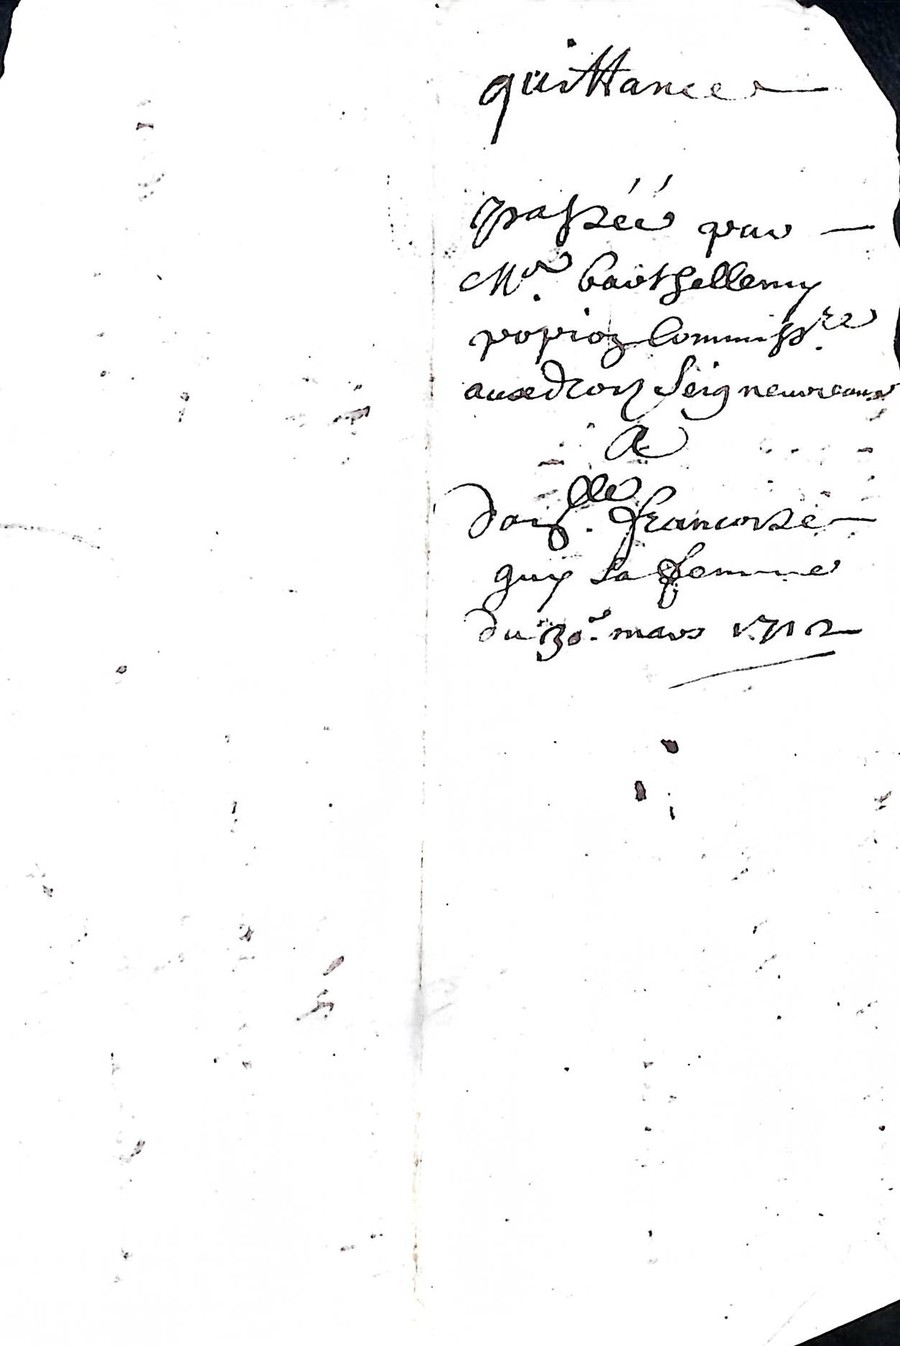 quittance
passéé par —
Mr. barthellemy
popioz Commissre
auxdroiz Seigneuriaux
A
doisslle. francoise —
guy sa femme
du 30e. mars 1712